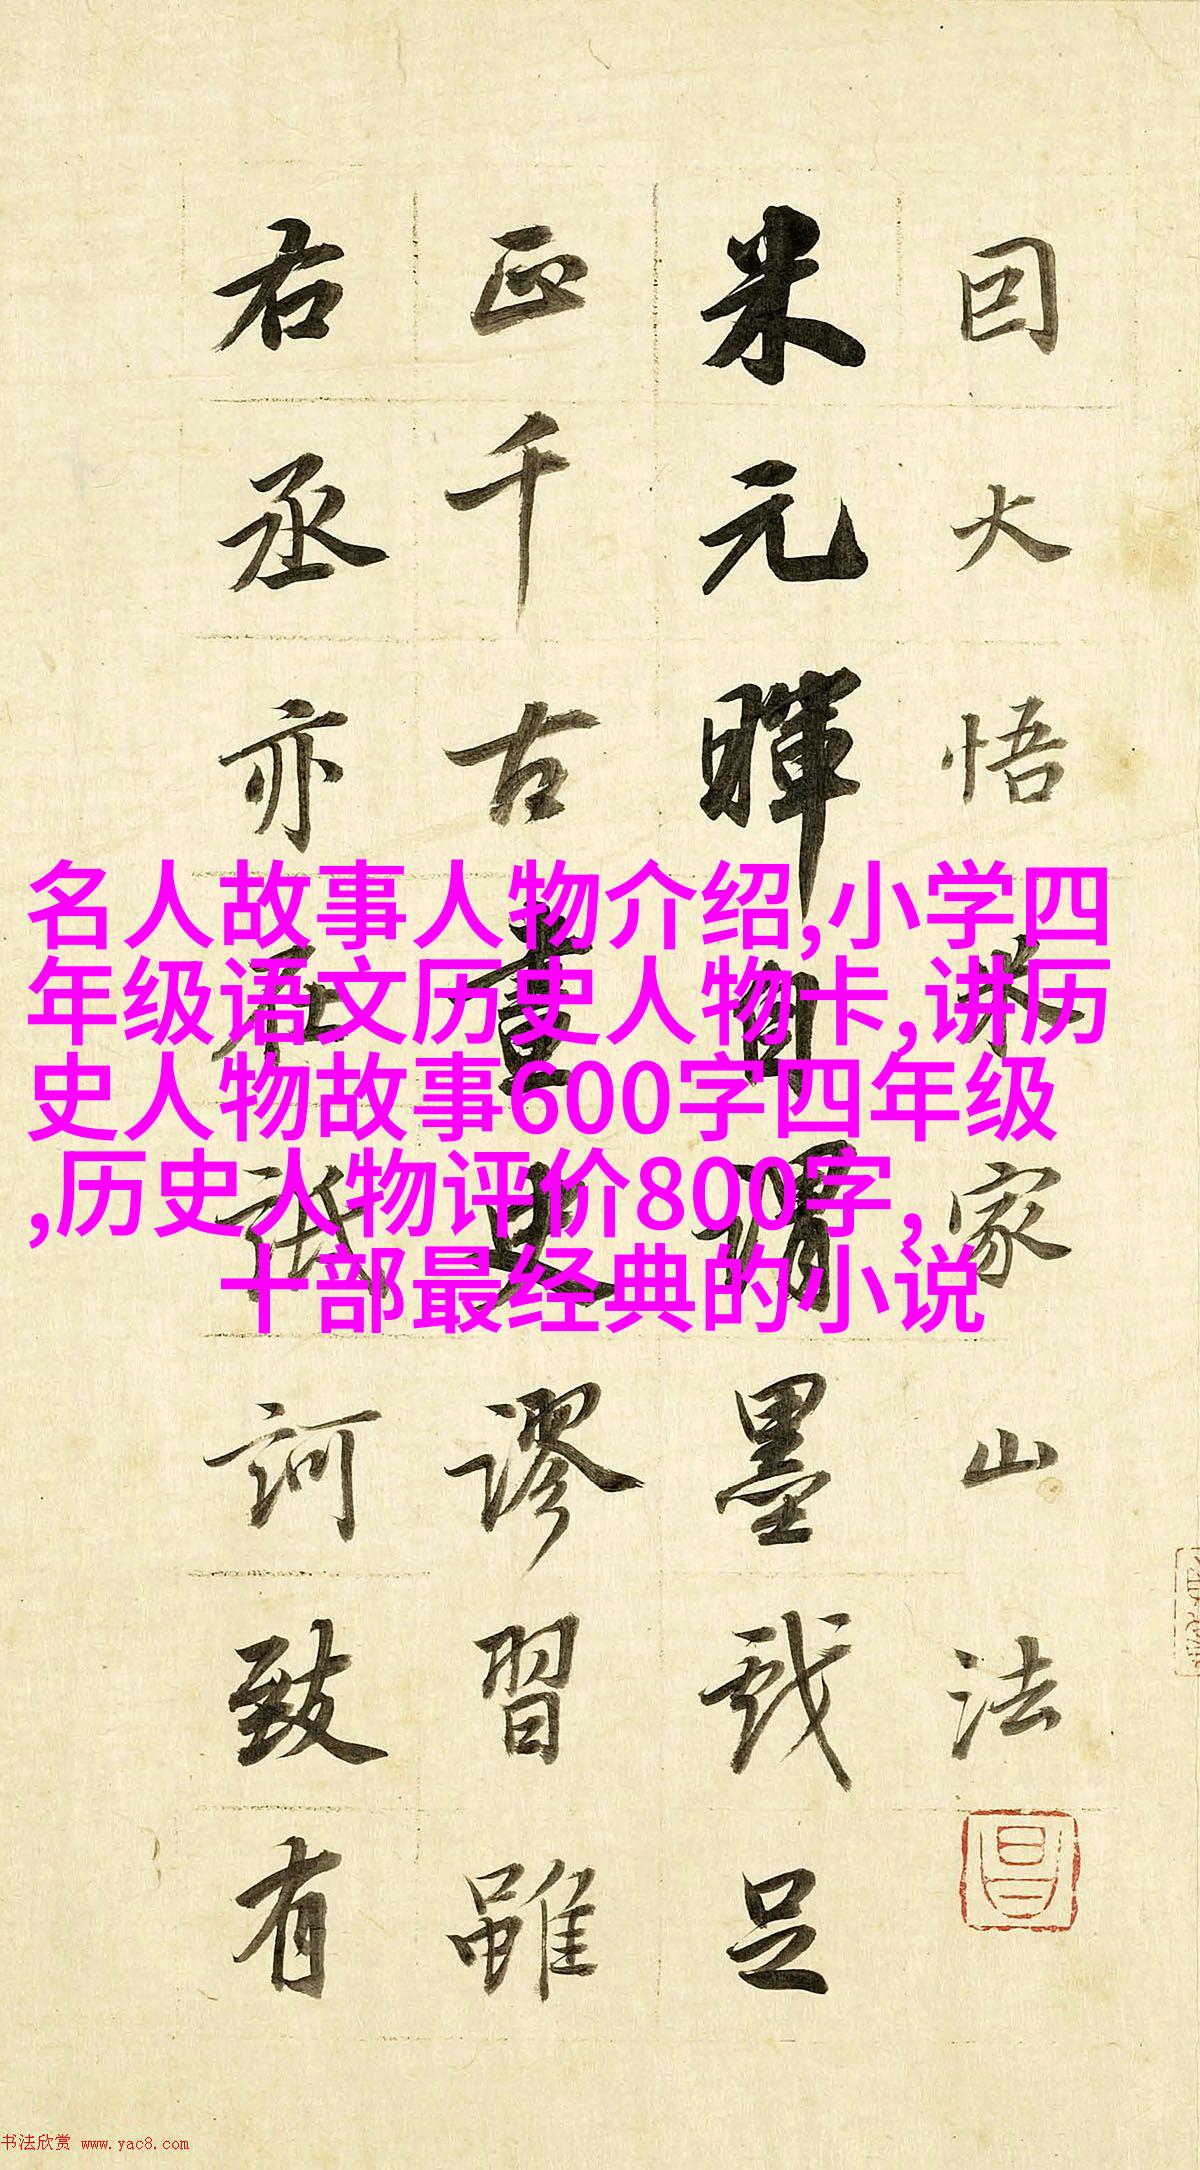 因大悟米家山法
米元暉自謂墨戲足
正千古畫史謬習雖
右丞亦在詆訶致有
名人故事人物介绍,小学四
年级语文历史人物卡,讲历
史人物故事600字四年级
,历史人物评价800字,
十部最经典的小说
书法欣赏 www.yac8.com